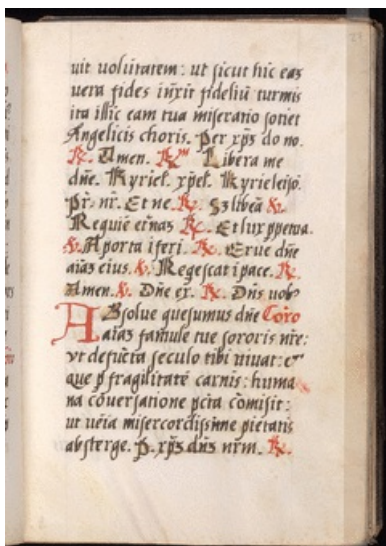 uit voluntatem: ut sicut hic eaȝ
uera fides iūxit fideliū turmis
ita illic eam tua miseratio sotiet
Angelicis choris. Per xp̄s do no.
℟. Amen. ℟ Libera me
dn̄e. Kyriel. xp̄el. Kyrieleisō.
Pr̄. nr̄. Et ne. ℟. Sȝ libeā ℣.
Requiē et̄nas ℟. Et lux ppetua.
℣. A porta iferi. ℟. Erue dn̄e
aīaȝ eius. ℣. Reqescat i pace. ℟.
Amen. ℣. Dn̄e ex. ℟. Dn̄s uob
ABsolue quesumus dn̄e Coro
aīaȝ famule tue sororis nr̄e:
vt defūcta seculo tibi uiuat: et
que p fragilitatē carnis: huma
na cōuersatione pcta cōmisit:
ut uēia misercordissime pietatis
absterge. P. xp̄ȝ dn̄ȝ nrm. ℟.